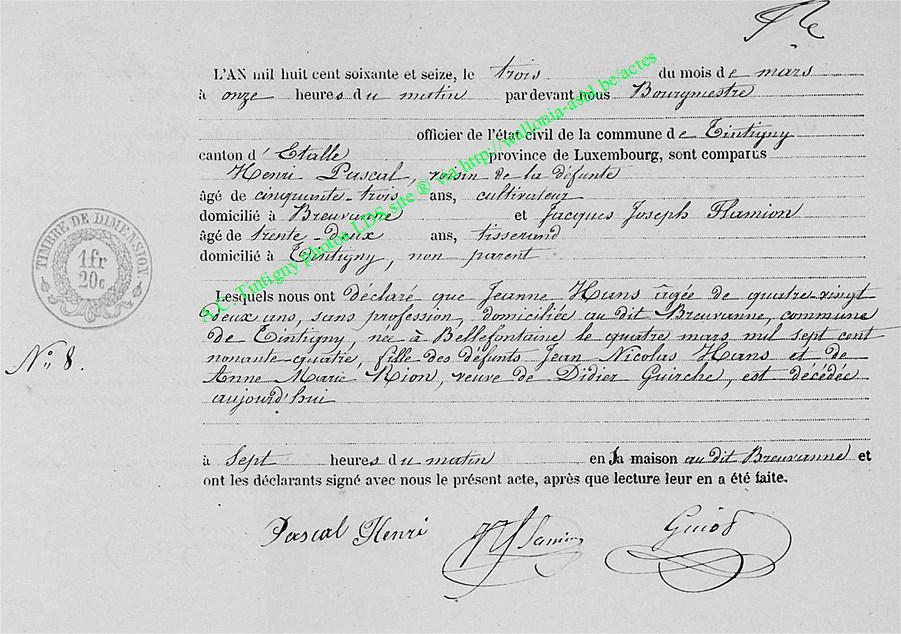 L'AN mil huit cent soixante et seize, le trois du mois de mars
à onze heures du matin pardevant nous Bourgmestre
officier de l'état civil de la commune de Tintigny
canton d'Etalle province de Luxembourg, sont comparus
Henri Pascal, voisin de la défunte
âgé de cinquante-trois ans, cultivateur
domicilié à Breuvanne et Jacques Joseph Flamion
âgé de trente-deux ans, tisserand
domicilié à Tintigny, non parent
TIMBRE DE DIMENSION.
1 fr
20 c
Lesquels nous ont déclaré que Jeanne Hans âgée de quatre-vingt
deux ans, sans profession, domiciliée au dit Breuvanne, commune
de Tintigny, née à Bellefontaine le quatre mars mil sept cent
No: 8.
nonante-quatre, fille des défunts Jean Nicolas Hans et de
Anne Marie Rion, veuve de Didier Guirche, est décédée
aujourd'hui
à sept heures du matin en la maison au dit Breuvanne et
ont les déclarants signé avec nous le présent acte, après que lecture leur en a été faite.
Pascal Henri
A.C. Tintigny photos LDS site ® via http://wallonia-asbl.be/actes